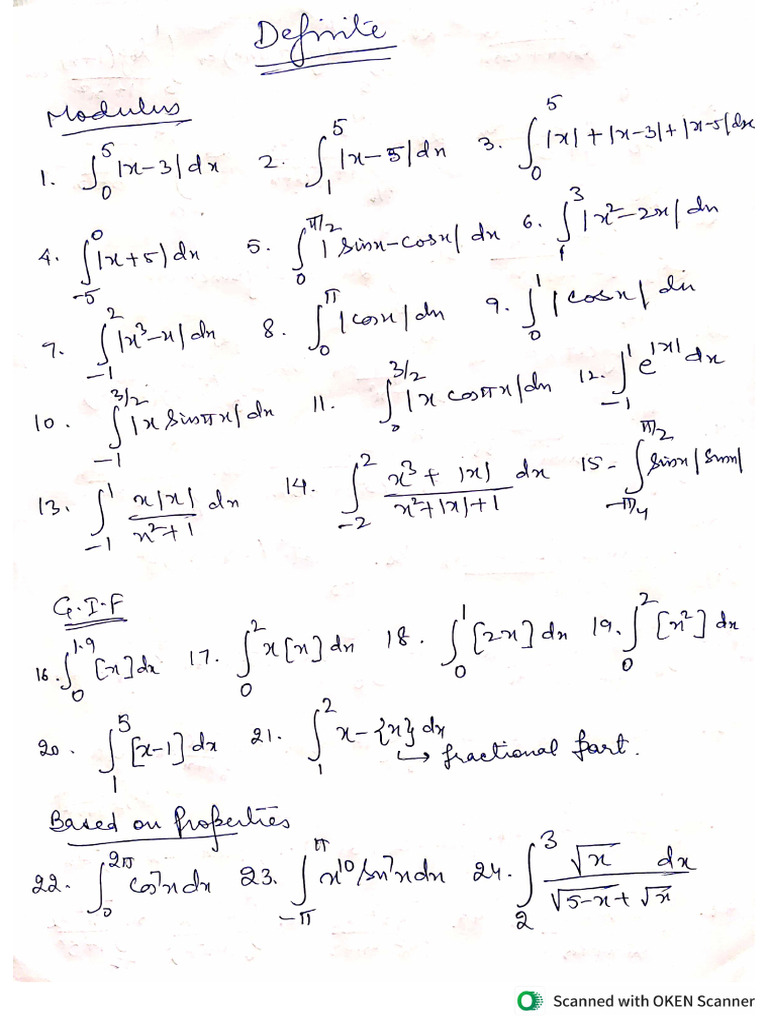 Definite
Modulus
1. ∫₀⁵ |x-3| dx 2. ∫₁⁵ |x-5| dx 3. ∫₀⁵ |x| + |x-3| + |x-5| dx
4. ∫₋₅⁰ |x+5| dx 5. ∫₀^(π/2) |sinx-cosx| dx 6. ∫₁³ |x²-2x| dx
7. ∫₋₁² |x³-x| dx 8. ∫₀^π |cosx| dx 9. ∫₀¹ |cosx| dx
10. ∫₋₁^(3/2) |x sinπx| dx 11. ∫₀^(3/2) |x cosπx| dx 12. ∫₋₁¹ e^|x| dx
13. ∫₋₁¹ x|x|/(x²+1) dx 14. ∫₋₂² (x³+|x|)/(x²+|x|+1) dx 15- ∫_(-π/4)^(π/2) sinx|sinx|
G.I.F
16. ∫₀^1.9 [x] dx 17. ∫₀² x[x] dx 18. ∫₀¹ [2x] dx 19. ∫₀² [x²] dx
20. ∫₁⁵ [x-1] dx 21. ∫₁² x-{x} dx
↳ fractional part.
Based on Properties
22. ∫₀^2π cos⁷x dx 23. ∫_(-π)^π x¹⁰ sin⁷x dx 24. ∫₂³ √x dx/(√(5-x)+√x)
Scanned with OKEN Scanner